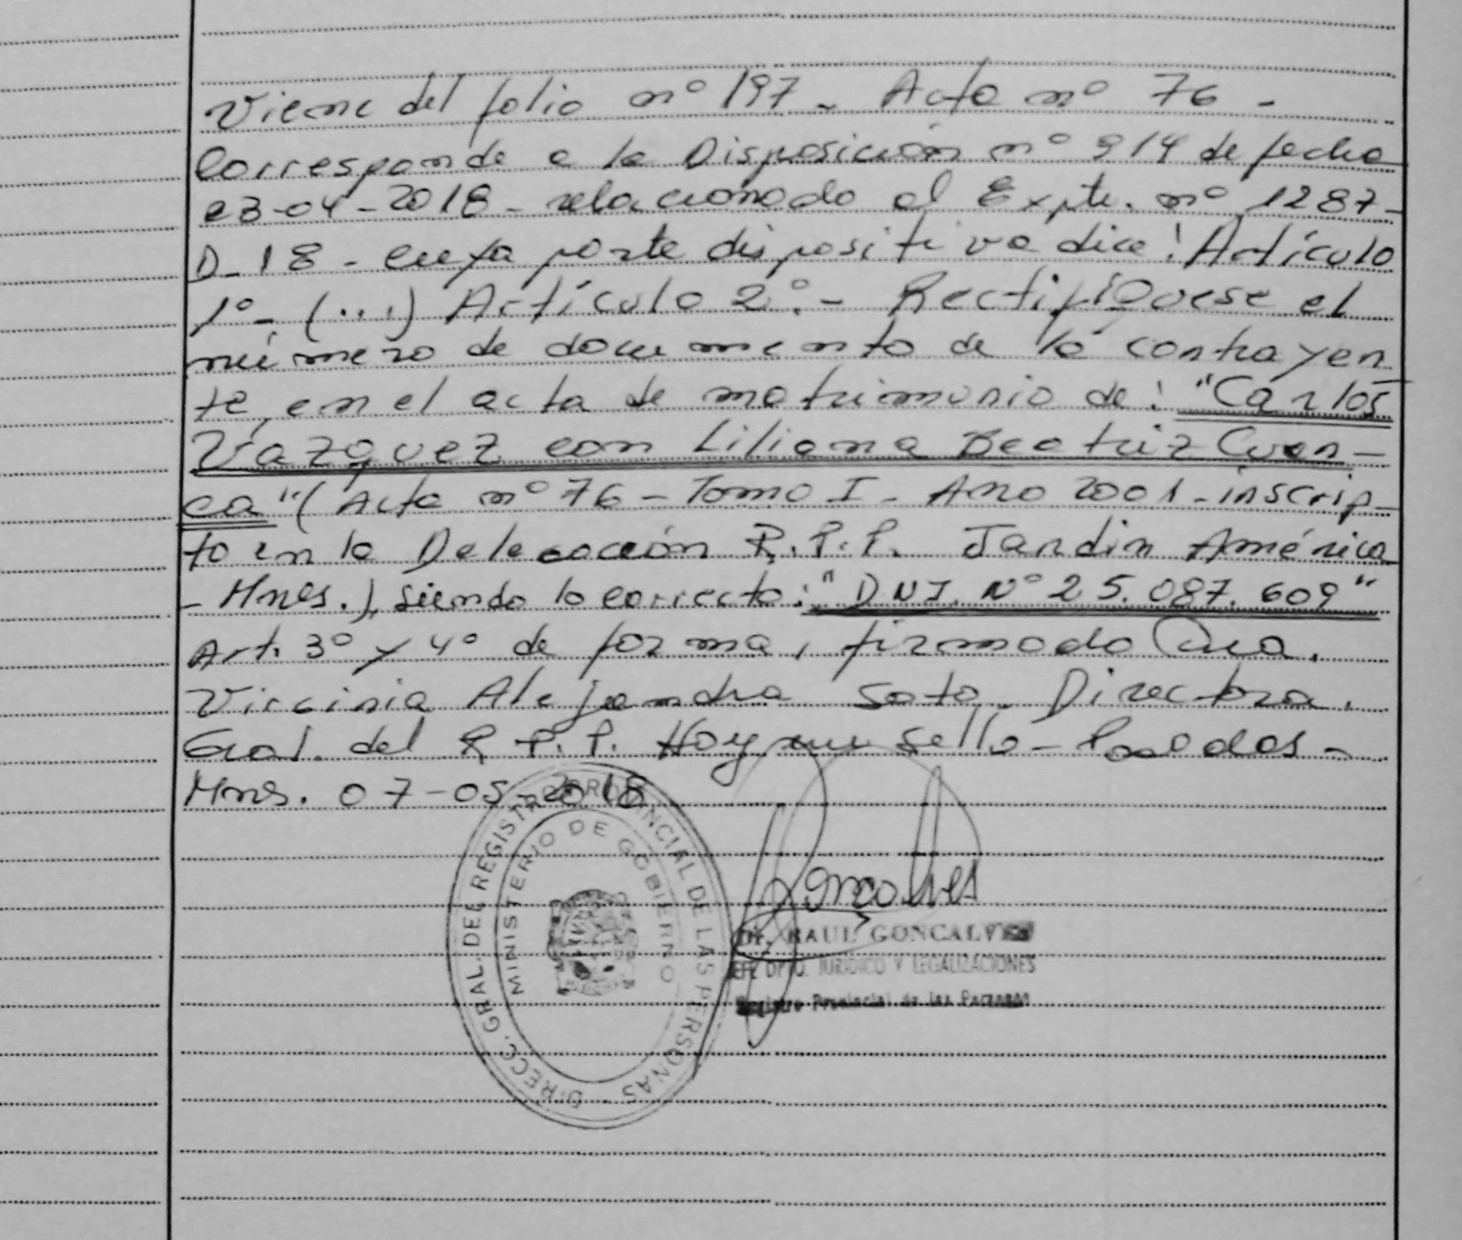 Viene del folio nº 197 - Acta nº 76 -
Corresponde a la Disposición nº 914 de fecha
23-04-2018 - relacionado al Expte. nº 1287-
D-18 - cuya parte dispositiva dice: Artículo
1º- (...) Artículo 2º- Rectifíquese el
número de documento de la contrayen
te, en el acta de matrimonio de: "Carlos
Vazquez con Liliana Beatriz Cuen-
ca" (Acta nº 76 - Tomo I - Ano 2001 - inscrip-
to en la Delegación R.P.P. Jardin América
- Mnes.), siendo lo correcto: "DNI. Nº 25.087.609"
Art. 3º y 4º de forma, firmado
Virginia Alejandra Soto. Directora.
Gral. del R.P.P. Hay un sello - Posadas -
Mns. 07-05-2018
DIRECC. GRAL. DEL REGISTRO PROVINCIAL DE LAS PERSONAS
MINISTERIO DE GOBIERNO
Goncalves
Dr. RAUL GONCALVES
JEFE DPTO. JURIDICO Y LEGALIZACIONES
Registro Provincial de las Personas